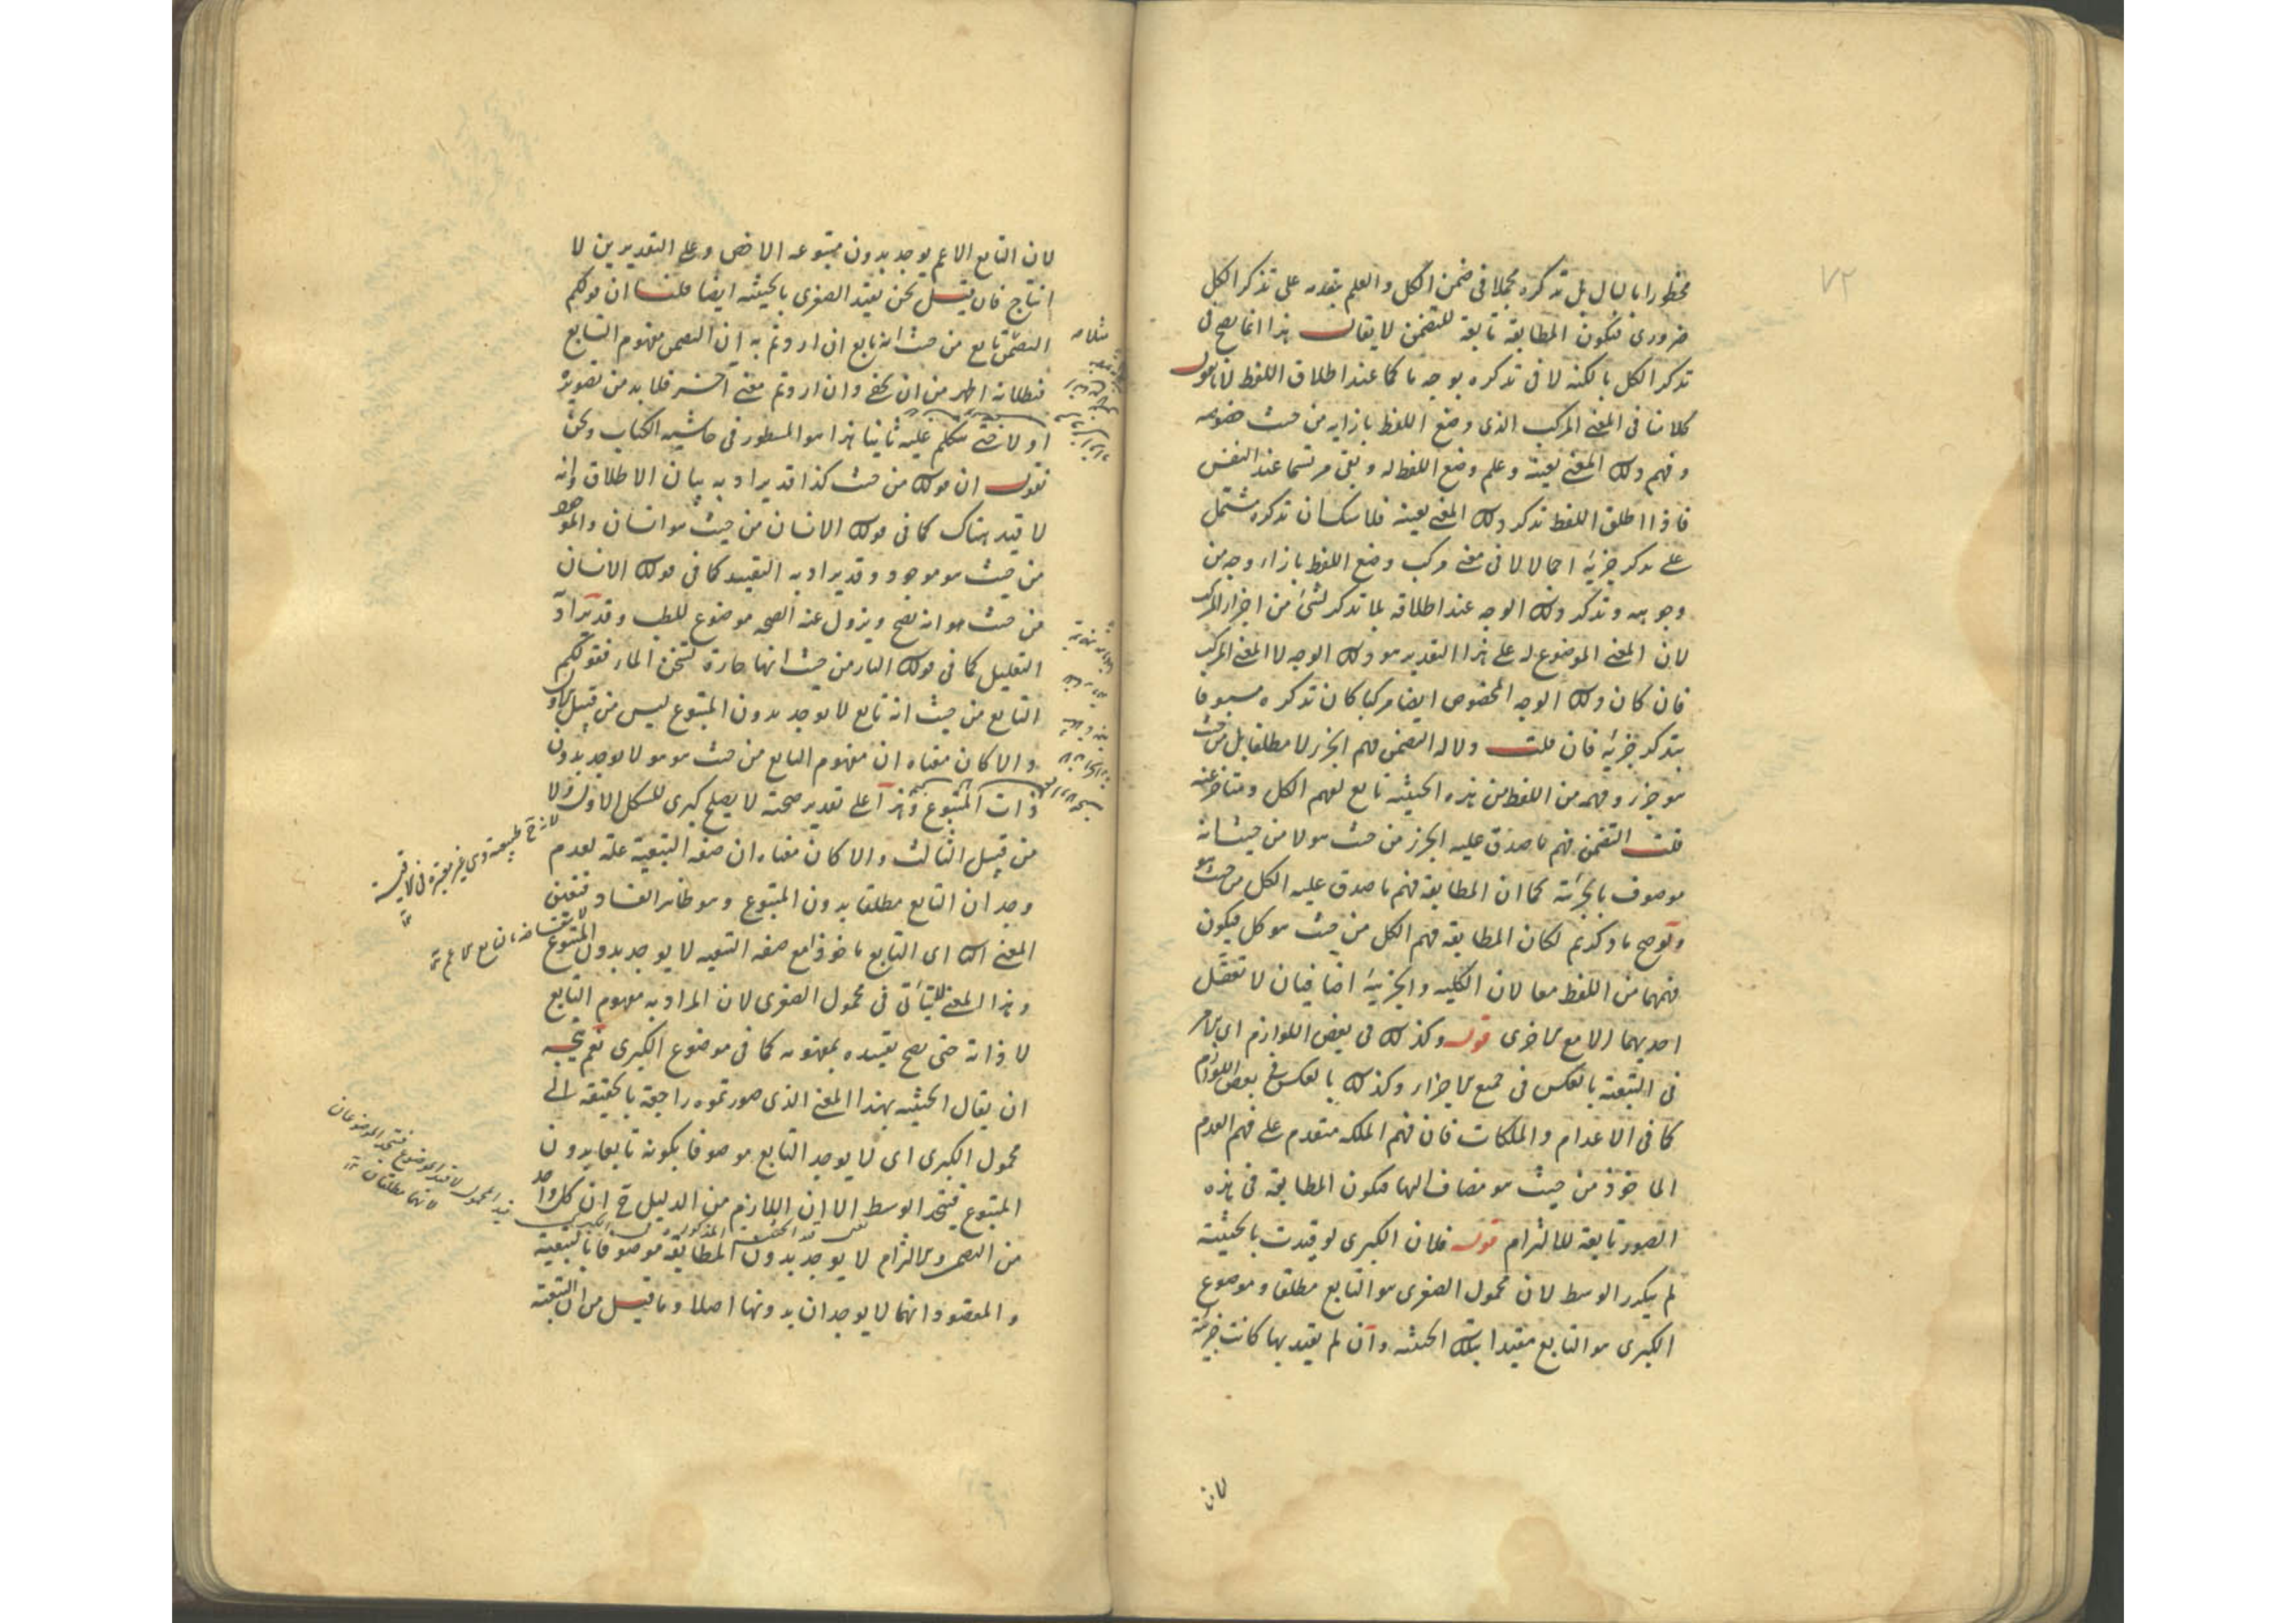 ٧٢
مخطورا بالبال بل تذكره مجملا فى ضمن الكل والعلم بتقدمه على تذكر الكل
ضرورى فتكون المطابقة تابعة للتضمن لا يقال هذا انما يصح فى
تذكر الكل بالكنه لا فى تذكره بوجه ما كما عند اطلاق اللفظ لانا نقول
كلامنا فى المعنى المركب الذى وضع اللفظ بازائه من حيث خصوصه
وفهم ذلك المعنى بعينه وعلم وضع اللفظ له وبقى مرتسما عند النفس
فاذا اطلق اللفظ تذكر ذلك المعنى بعينه فلا شك ان تذكره مشتمل
على تذكر جزئه اجمالا لا فى معنى مركب وضع اللفظ بازاء وجه من
وجوهه وتذكر ذلك الوجه عند اطلاقه بلا تذكر لشئ من اجزاء المركب
لان المعنى الموضوع له على هذا التقدير هو ذلك الوجه لا المعنى المركب
فان كان ذلك الوجه المخصوص ايضا مركبا كان تذكره مسبوقا
بتذكر جزئه فان قلت دلالة التضمن فهم الجزء لا مطلقا بل من حيث
هو جزء وفهمه من اللفظ من هذه الحيثية تابع لفهم الكل ومتاخر عنه
قلت التضمن فهم ما صدق عليه الجزء من حيث هو لا من حيث انه
موصوف بالجزئية كما ان المطابقة فهم ما صدق عليه الكل من حيث هو
ولو صح ما ذكرتم لكان المطابقة فهم الكل من حيث هو كل فيكون
فهمهما من اللفظ معا لان الكلية والجزئية اضافيان لا تعقل
احديهما الا مع الاخرى قوله وكذلك فى بعض اللوازم اى الامر
فى التبعية بالعكس فى جميع الاجزاء وكذلك بالعكس فى بعض اللوازم
كما فى الاعدام والملكات فان فهم الملكة متقدم على فهم العدم
الماخوذ من حيث هو مضاف اليها فتكون المطابقة فى هذه
الصور تابعة للالتزام قوله فلان الكبرى لو قيدت بالحيثية
لم يتكرر الوسط لان محمول الصغرى هو التابع مطلقا وموضوع
الكبرى هو التابع مقيدا بتلك الحيثية وان لم يقيد بها كانت جزئية
لان
لان التابع الاعم يوجد بدون متبوعه الاخص وعلى التقديرين لا
انتاج فان قيل نحن نقيد الصغرى بالحيثية ايضا قلنا ان قولكم
التضمن تابع من حيث انه تابع ان اردتم به ان التضمن مفهوم التابع
فبطلانه اظهر من ان يخفى وان اردتم معنى آخر فلا بد من تصويره
اولا حتى يتكلم عليه ثانيا هذا هو المسطور فى حاشية الكتاب ونحن
نقول ان قولك من حيث كذا قد يراد به بيان الاطلاق وانه
لا قيد هناك كما فى قولك الانسان من حيث هو انسان والموجود
من حيث هو موجود وقد يراد به التقييد كما فى قولك الانسان
من حيث هو انه يصح ويزول عنه الصحة موضوع للطب وقد يراد
التعليل كما فى قولك النار من حيث انها حارة تسخن الماء فقولكم
التابع من حيث انه تابع لا يوجد بدون المتبوع ليس من قبيل الاول
والا كان معناه ان مفهوم التابع من حيث هو هو لا يوجد بدون
ذات المتبوع وهذا على تقدير صحته لا يصلح كبرى للشكل الاول ولا
من قبيل الثالث والا كان معناه ان صفة التبعية علة لعدم
وجدان التابع مطلقا بدون المتبوع وهو ظاهر الفساد فتعين
المعنى الثانى اى التابع ماخوذا مع صفة التبعية لا يوجد بدون المتبوع
وهذا المعنى لا يتاتى فى محمول الصغرى لان المراد به مفهوم التابع
لا ذاته حتى يصح تقييده بمفهومه كما فى موضوع الكبرى نعم يتجه
ان يقال الحيثية بهذا المعنى الذى صورتموه راجعة بالحقيقة الى
محمول الكبرى اى لا يوجد التابع موصوفا بكونه تابعا بدون
المتبوع فيتحد الوسط الا ان اللازم من الدليل ح ان كل واحد
من التضمن والالتزام لا يوجد بدون المطابقة موصوفا بالتبعية
والمقصود انهما لا يوجدان بدونها اصلا وما قيل من ان التبعية
لانه ح طبيعية وهى غير معتبرة فى الاقيسة
قيد المحمول لا قيد الموضوع فيتحد الموضوعان
لانهما مطلقان